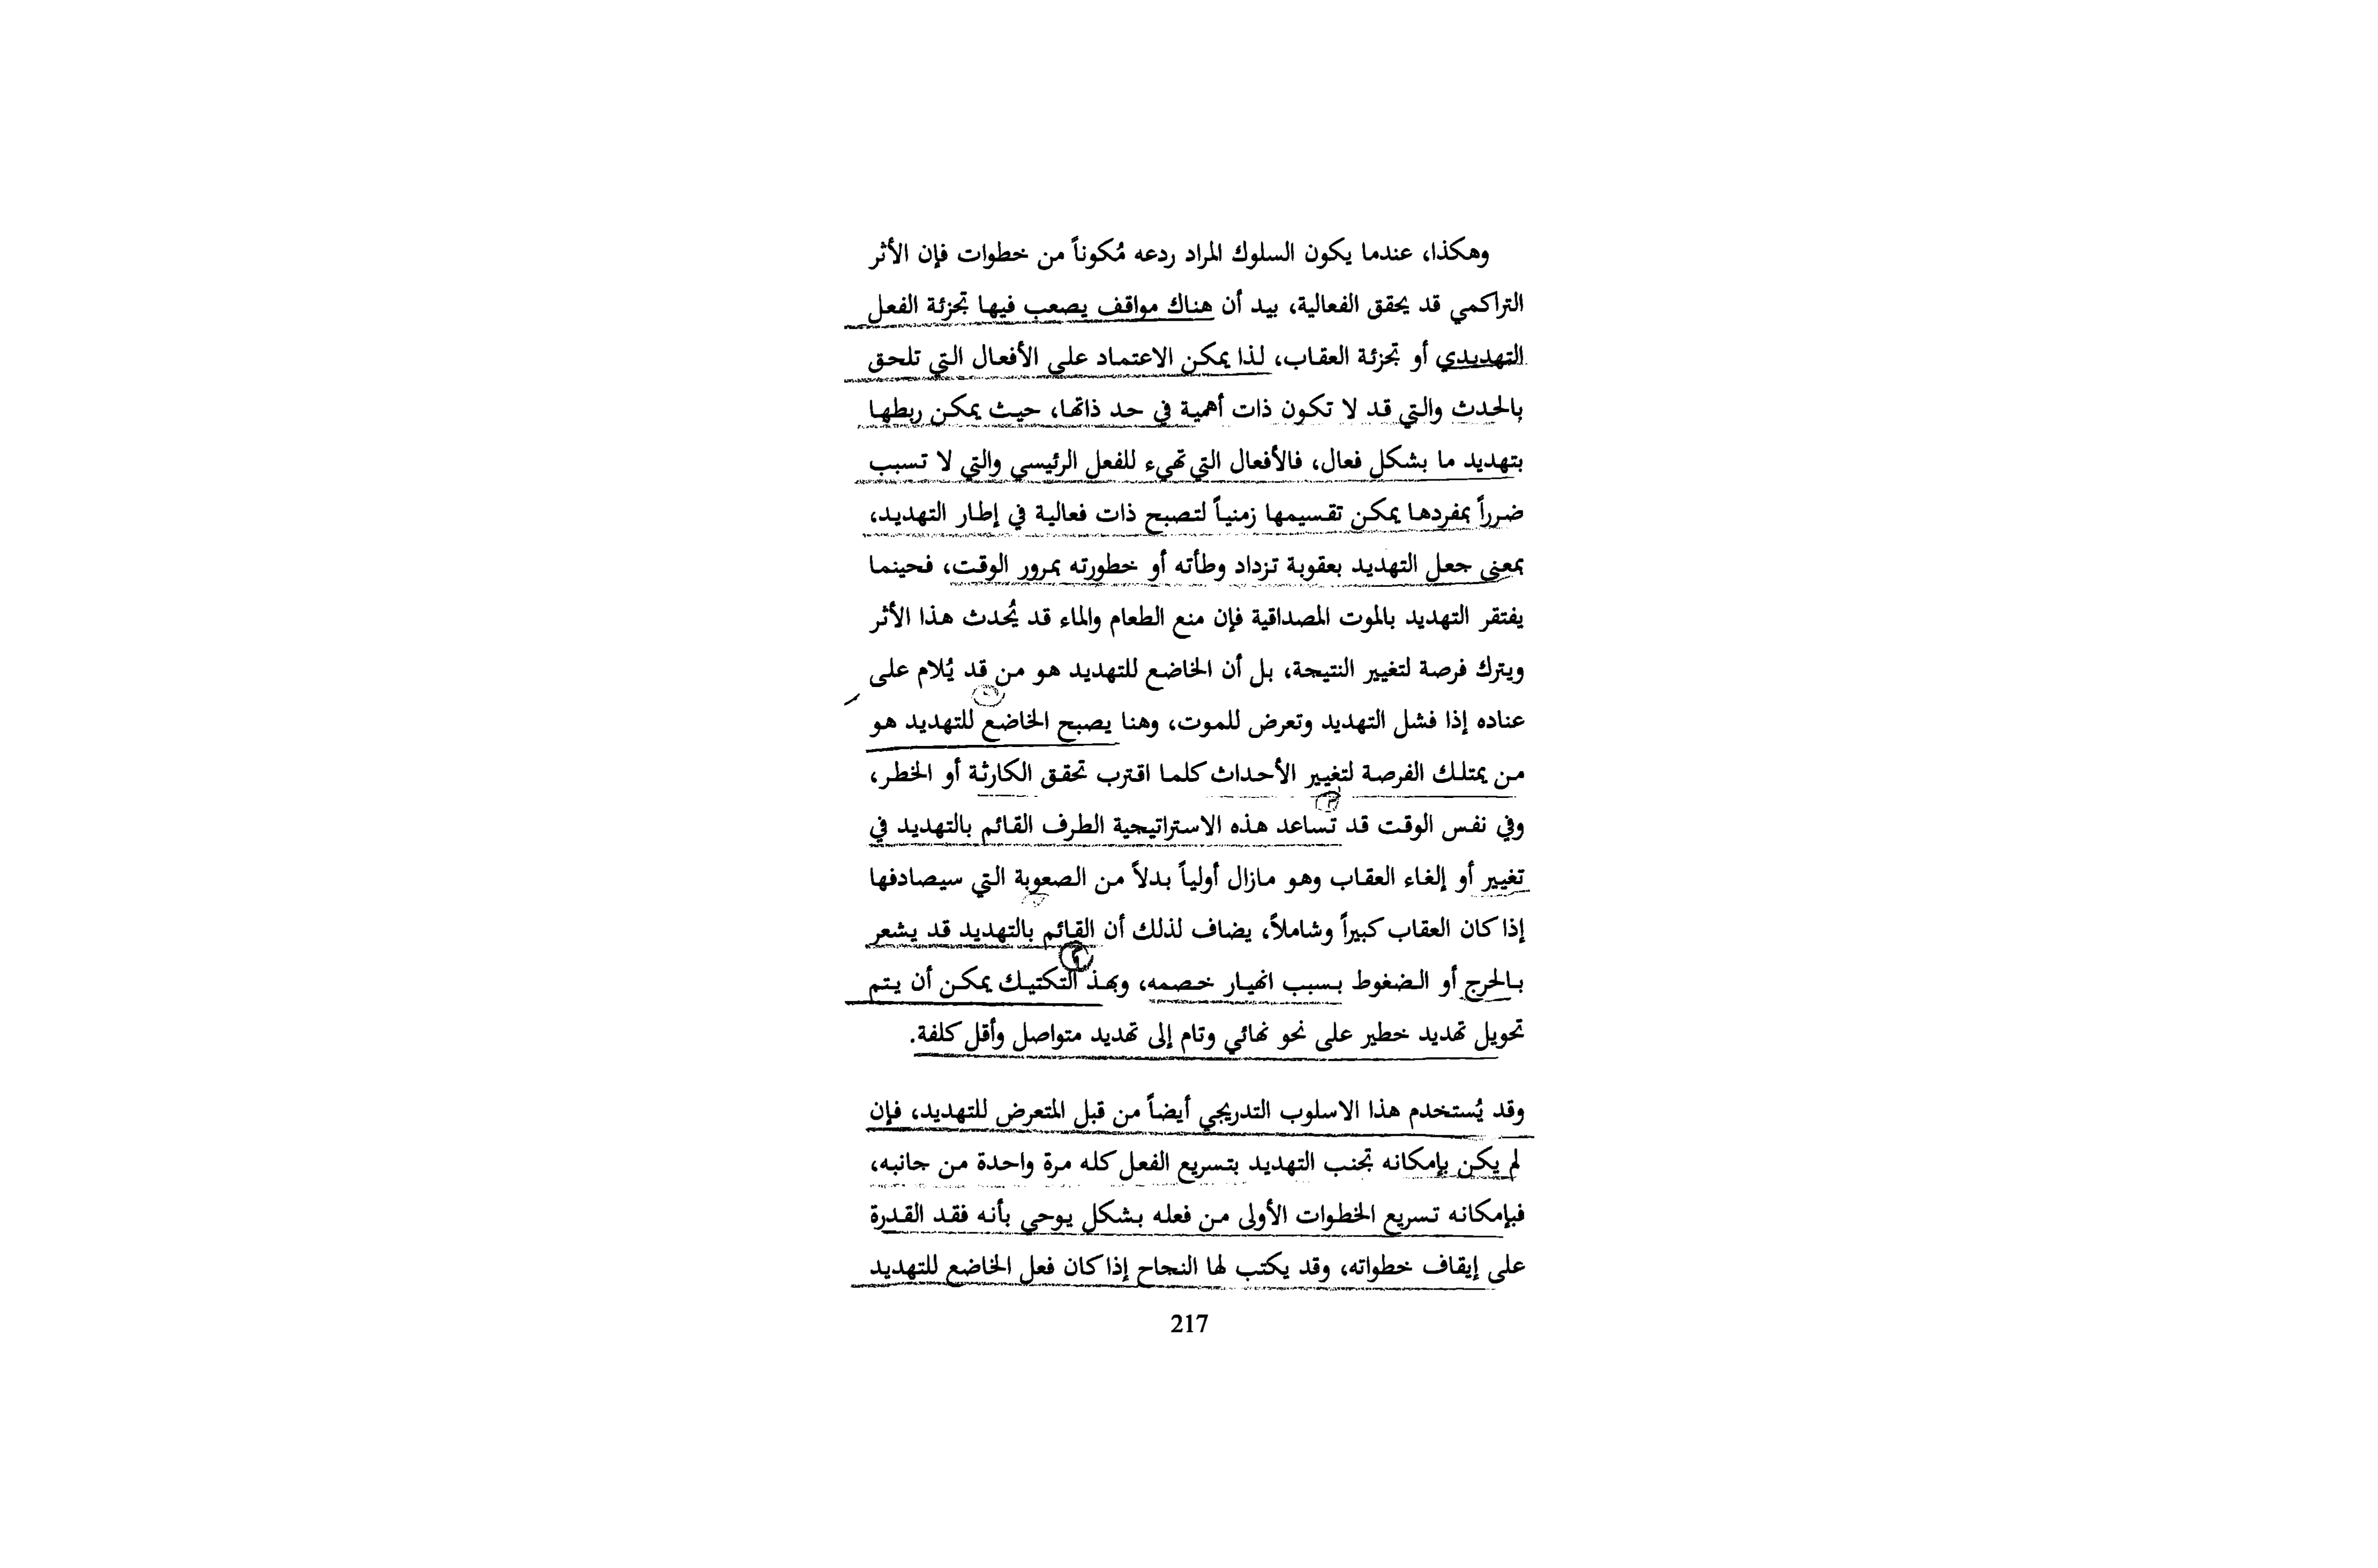 وهكذا، عندما يكون السلوك المراد ردعه مُكوناً من خطوات فإن الأثر
التراكمي قد يحقق الفعالية، بيد أن هناك مواقف يصعب فيها تجزئة الفعل
التهديدي أو تجزئة العقاب، لذا يمكن الاعتماد على الأفعال التي تلحق
بالحدث والتي قد لا تكون ذات أهمية في حد ذاتها، حيث يمكن ربطها
بتهديد ما بشكل فعال، فالأفعال التي تهيء للفعل الرئيسي والتي لا تسبب
ضرراً بمفردها يمكن تقسيمها زمنياً لتصبح ذات فعالية في إطار التهديد،
بمعنى جعل التهديد بعقوبة تزداد وطأته أو خطورته بمرور الوقت، فحينما
يفتقر التهديد بالموت المصداقية فإن منع الطعام والماء قد يُحدث هذا الأثر
ويترك فرصة لتغيير النتيجة، بل أن الخاضع للتهديد هو من قد يُلام على
عناده إذا فشل التهديد وتعرض للموت، وهنا يصبح الخاضع للتهديد هو
من يمتلك الفرصة لتغيير الأحداث كلما اقترب تحقق الكارثة أو الخطر،
وفي نفس الوقت قد تساعد هذه الاستراتيجية الطرف القائم بالتهديد في
تغيير أو إلغاء العقاب وهو مازال أولياً بدلاً من الصعوبة التي سيصادفها
إذا كان العقاب كبيراً وشاملاً، يضاف لذلك أن القائم بالتهديد قد يشعر
بالحرج أو الضغوط بسبب انهيار خصمه، وبهذ التكتيك يمكن أن يتم
تحويل تهديد خطير على نحو نهائي وتام إلى تهديد متواصل وأقل كلفة.
وقد يُستخدم هذا الاسلوب التدريجي أيضاً من قبل المتعرض للتهديد، فإن
لم يكن بإمكانه تجنب التهديد بتسريع الفعل كله مرة واحدة من جانبه،
فبإمكانه تسريع الخطوات الأولى من فعله بشكل يوحي بأنه فقد القدرة
على إيقاف خطواته، وقد يكتب لها النجاح إذا كان فعل الخاضع للتهديد
217